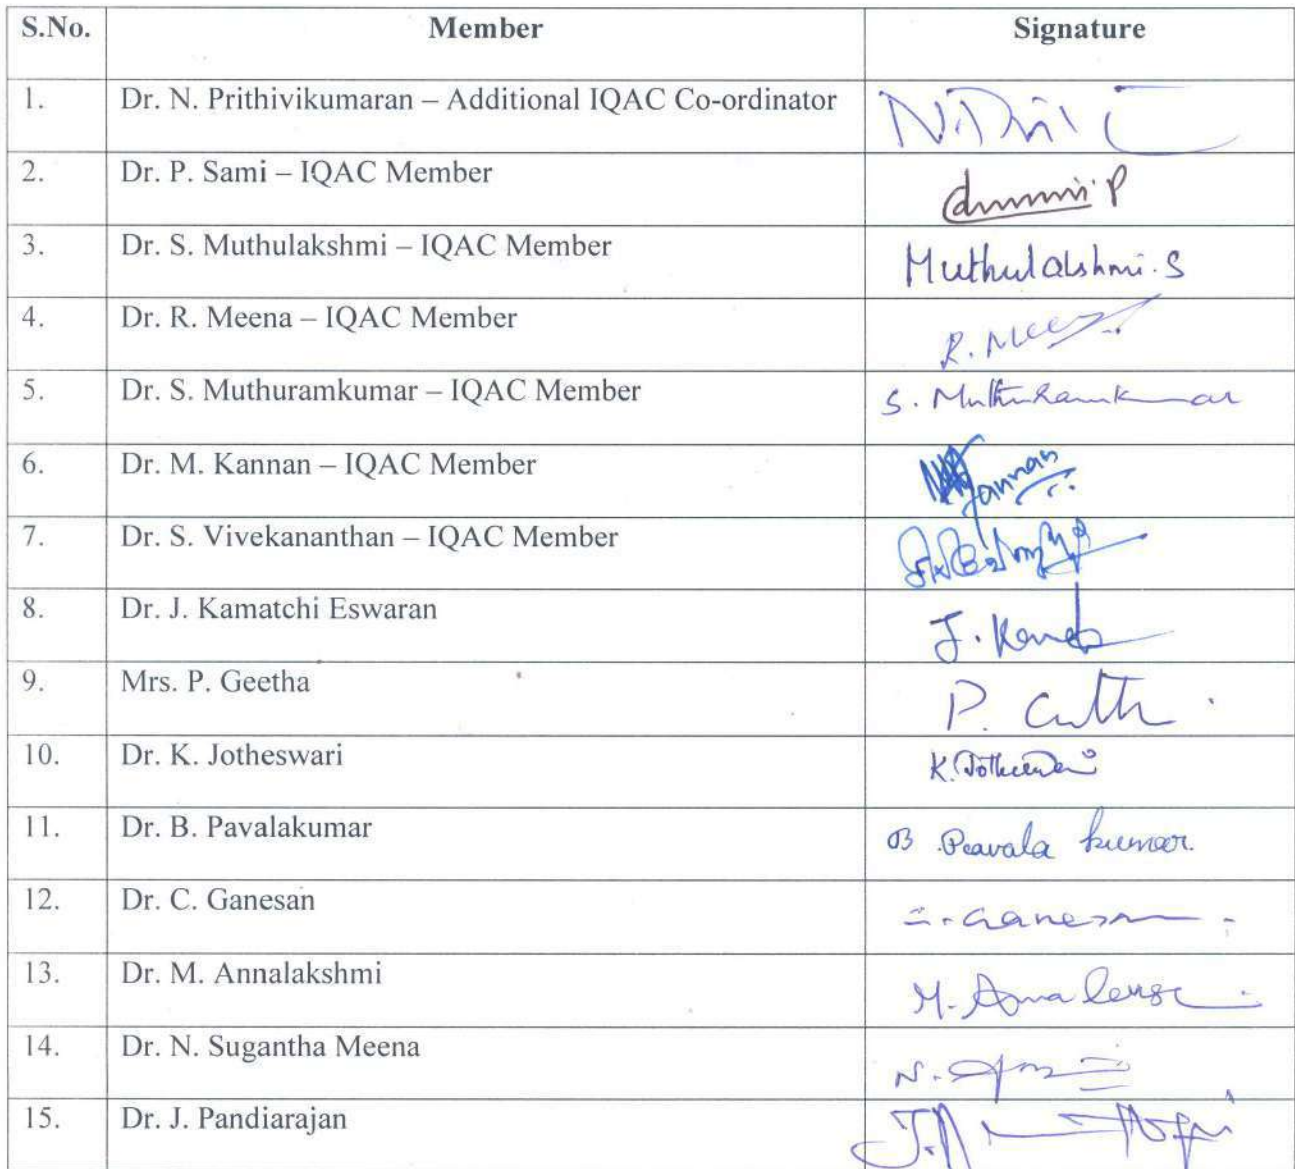 S.No. Member Signature
1. Dr. N. Prithivikumaran – Additional IQAC Co-ordinator
2. Dr. P. Sami – IQAC Member
3. Dr. S. Muthulakshmi – IQAC Member Muthulakshmi. S
4. Dr. R. Meena – IQAC Member R. Mee
5. Dr. S. Muthuramkumar – IQAC Member S. Muthuramkumar
6. Dr. M. Kannan – IQAC Member Kannan
7. Dr. S. Vivekananthan – IQAC Member
8. Dr. J. Kamatchi Eswaran J.
9. Mrs. P. Geetha P.
10. Dr. K. Jotheswari K.
11. Dr. B. Pavalakumar B. Pavala kumar.
12. Dr. C. Ganesan Ganesan
13. Dr. M. Annalakshmi M.
14. Dr. N. Sugantha Meena N.
15. Dr. J. Pandiarajan J.